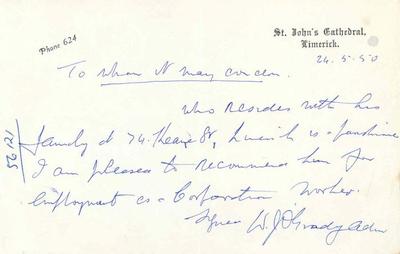 Phone 624
St. John's Cathedral,
Limerick.
24.5.50
To whom it may concern.
who resides with his
family at 74. St, Limerick is a
I am pleased to recommend him for
employment as a Corporation Worker.
Signed W. J. O'Grady Adm
56121